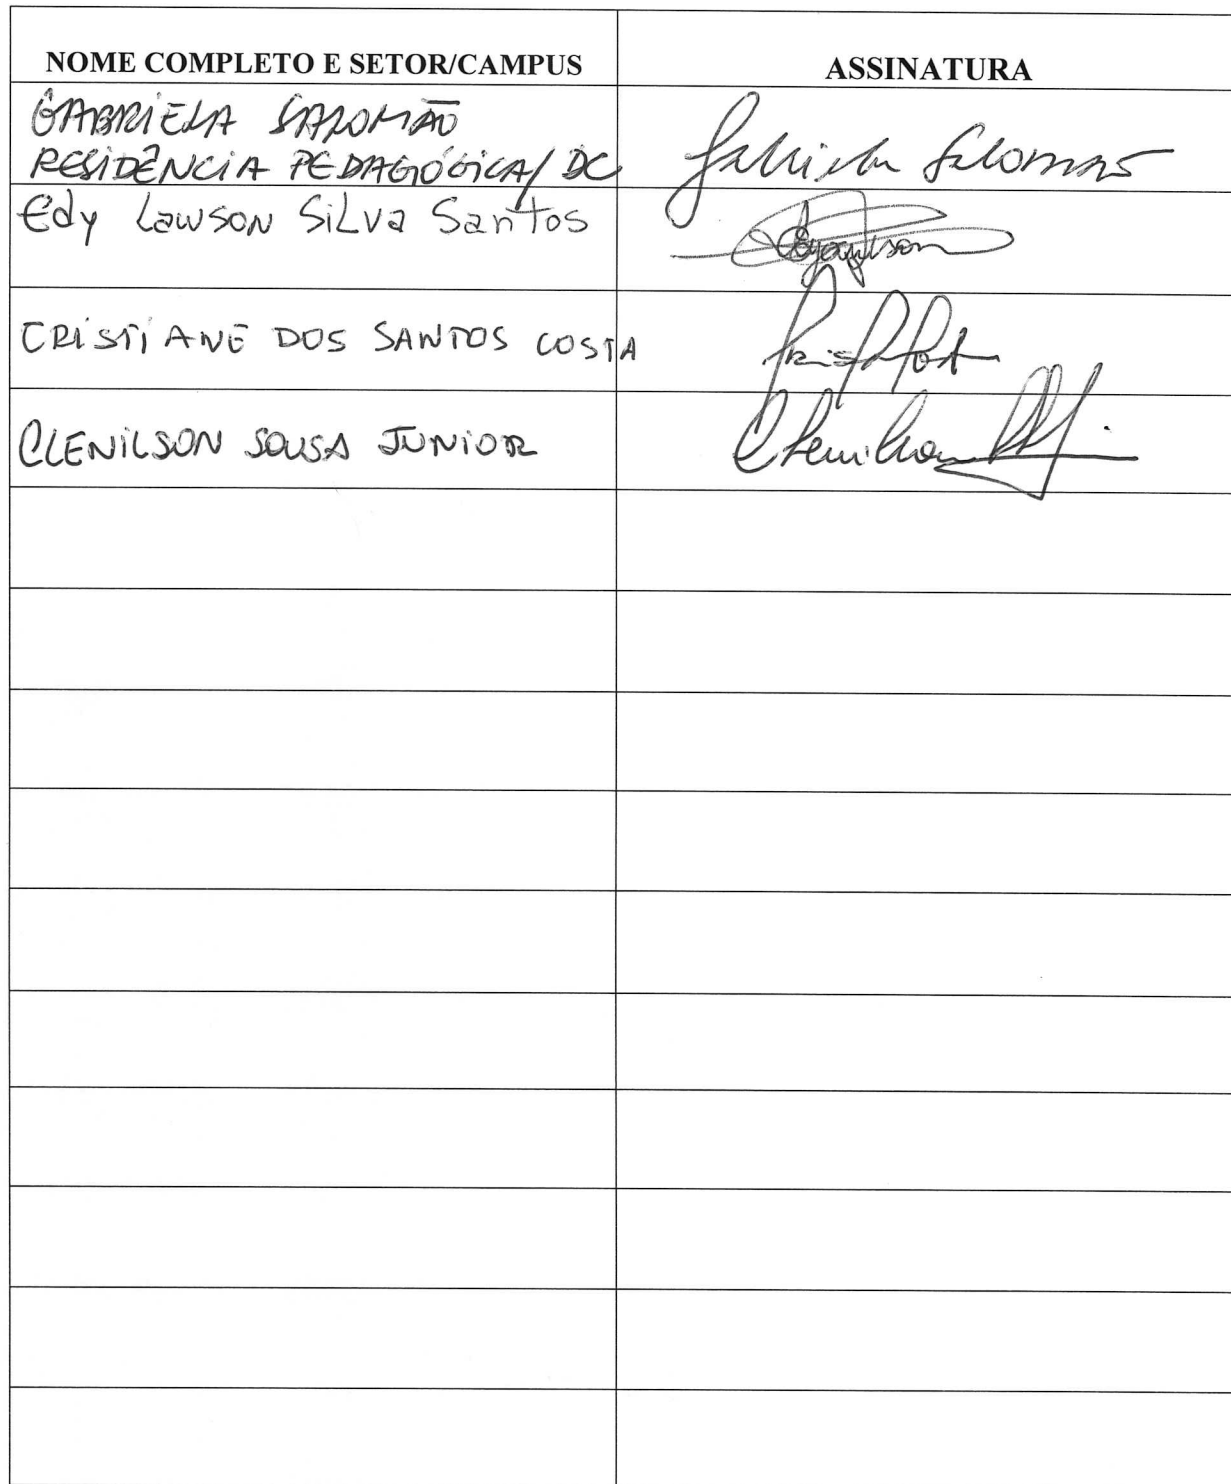 NOME COMPLETO E SETOR/CAMPUS ASSINATURA
GABRIELA SALOMÃO
RESIDÊNCIA PEDAGÓGICA/DC Gabriela Salomão
Edy Lawson Silva Santos
CRISTIANE DOS SANTOS COSTA
CLENILSON SOUSA JUNIOR Clenilson